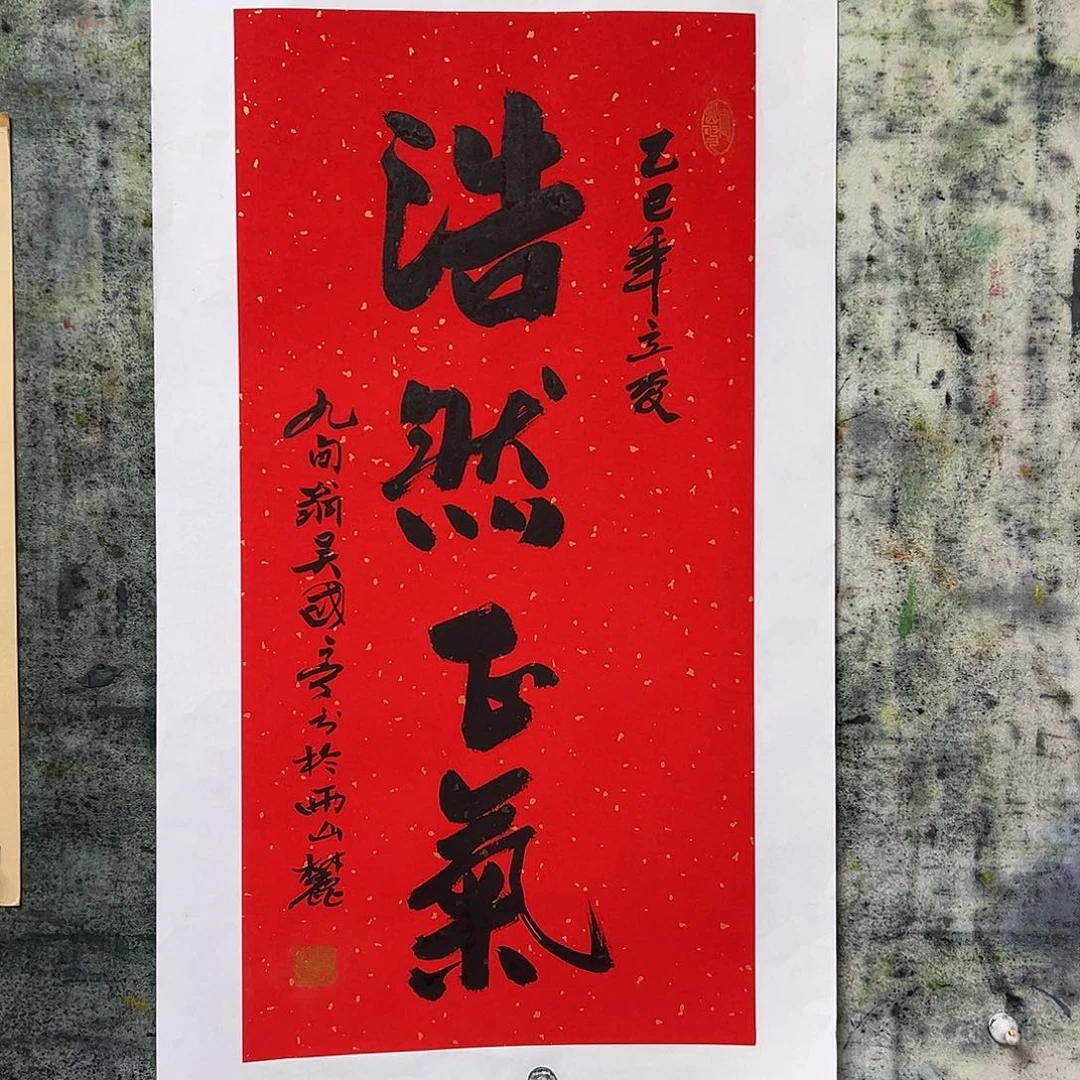 乙巳年立夏
浩然正氣
九旬翁吴國亭书於山麓